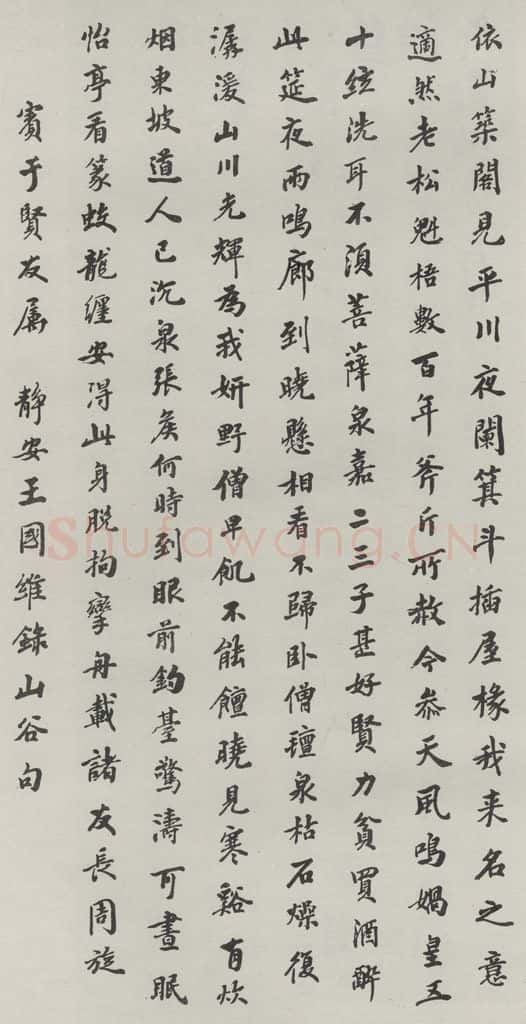 依山築閣見平川夜闌箕斗插屋椽我来名之意
適然老松魁梧數百年斧斤所赦今叅天風鳴媧皇五
十絃洗耳不須菩薩泉嘉二三子甚好賢力貧買酒醉
此筵夜雨鳴廊到曉懸相看不歸卧僧氊泉枯石燥復
潺湲山川光輝為我妍野僧早飢不能饘曉見寒谿有炊
烟東坡道人已沉泉張侯何時到眼前釣臺驚濤可晝眠
怡亭看篆蛟龍纏安得此身脱拘攣舟載諸友長周旋
賓于賢友属 靜安王國維錄山谷句
Shufawang.CN